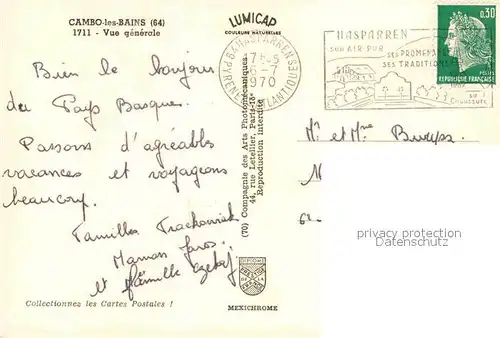 CAMBO-les-BAINS (64)
1711 - Vue générale
LUMICAP
COULEURS NATURELLES
Bien le bonjour
du Pays Basque.
Passons d'agréables
vacances et voyageons
beaucoup.
Familles
Maman
et famille
Collectionnez les Cartes Postales !
(70) Compagnie des Arts Photomécaniques
44, rue Letellier, Paris-15e
Reproduction interdite
MEXICHROME
64 HASPARREN
PYRENEES ATLANTIQUES
1970
HASPARREN
SON AIR PUR
SES PROMENADES
SES TRADITIONS
0,30
REPUBLIQUE FRANÇAISE
POSTES
Mr et Mme
M
62
protection watermark
DatenSchutz